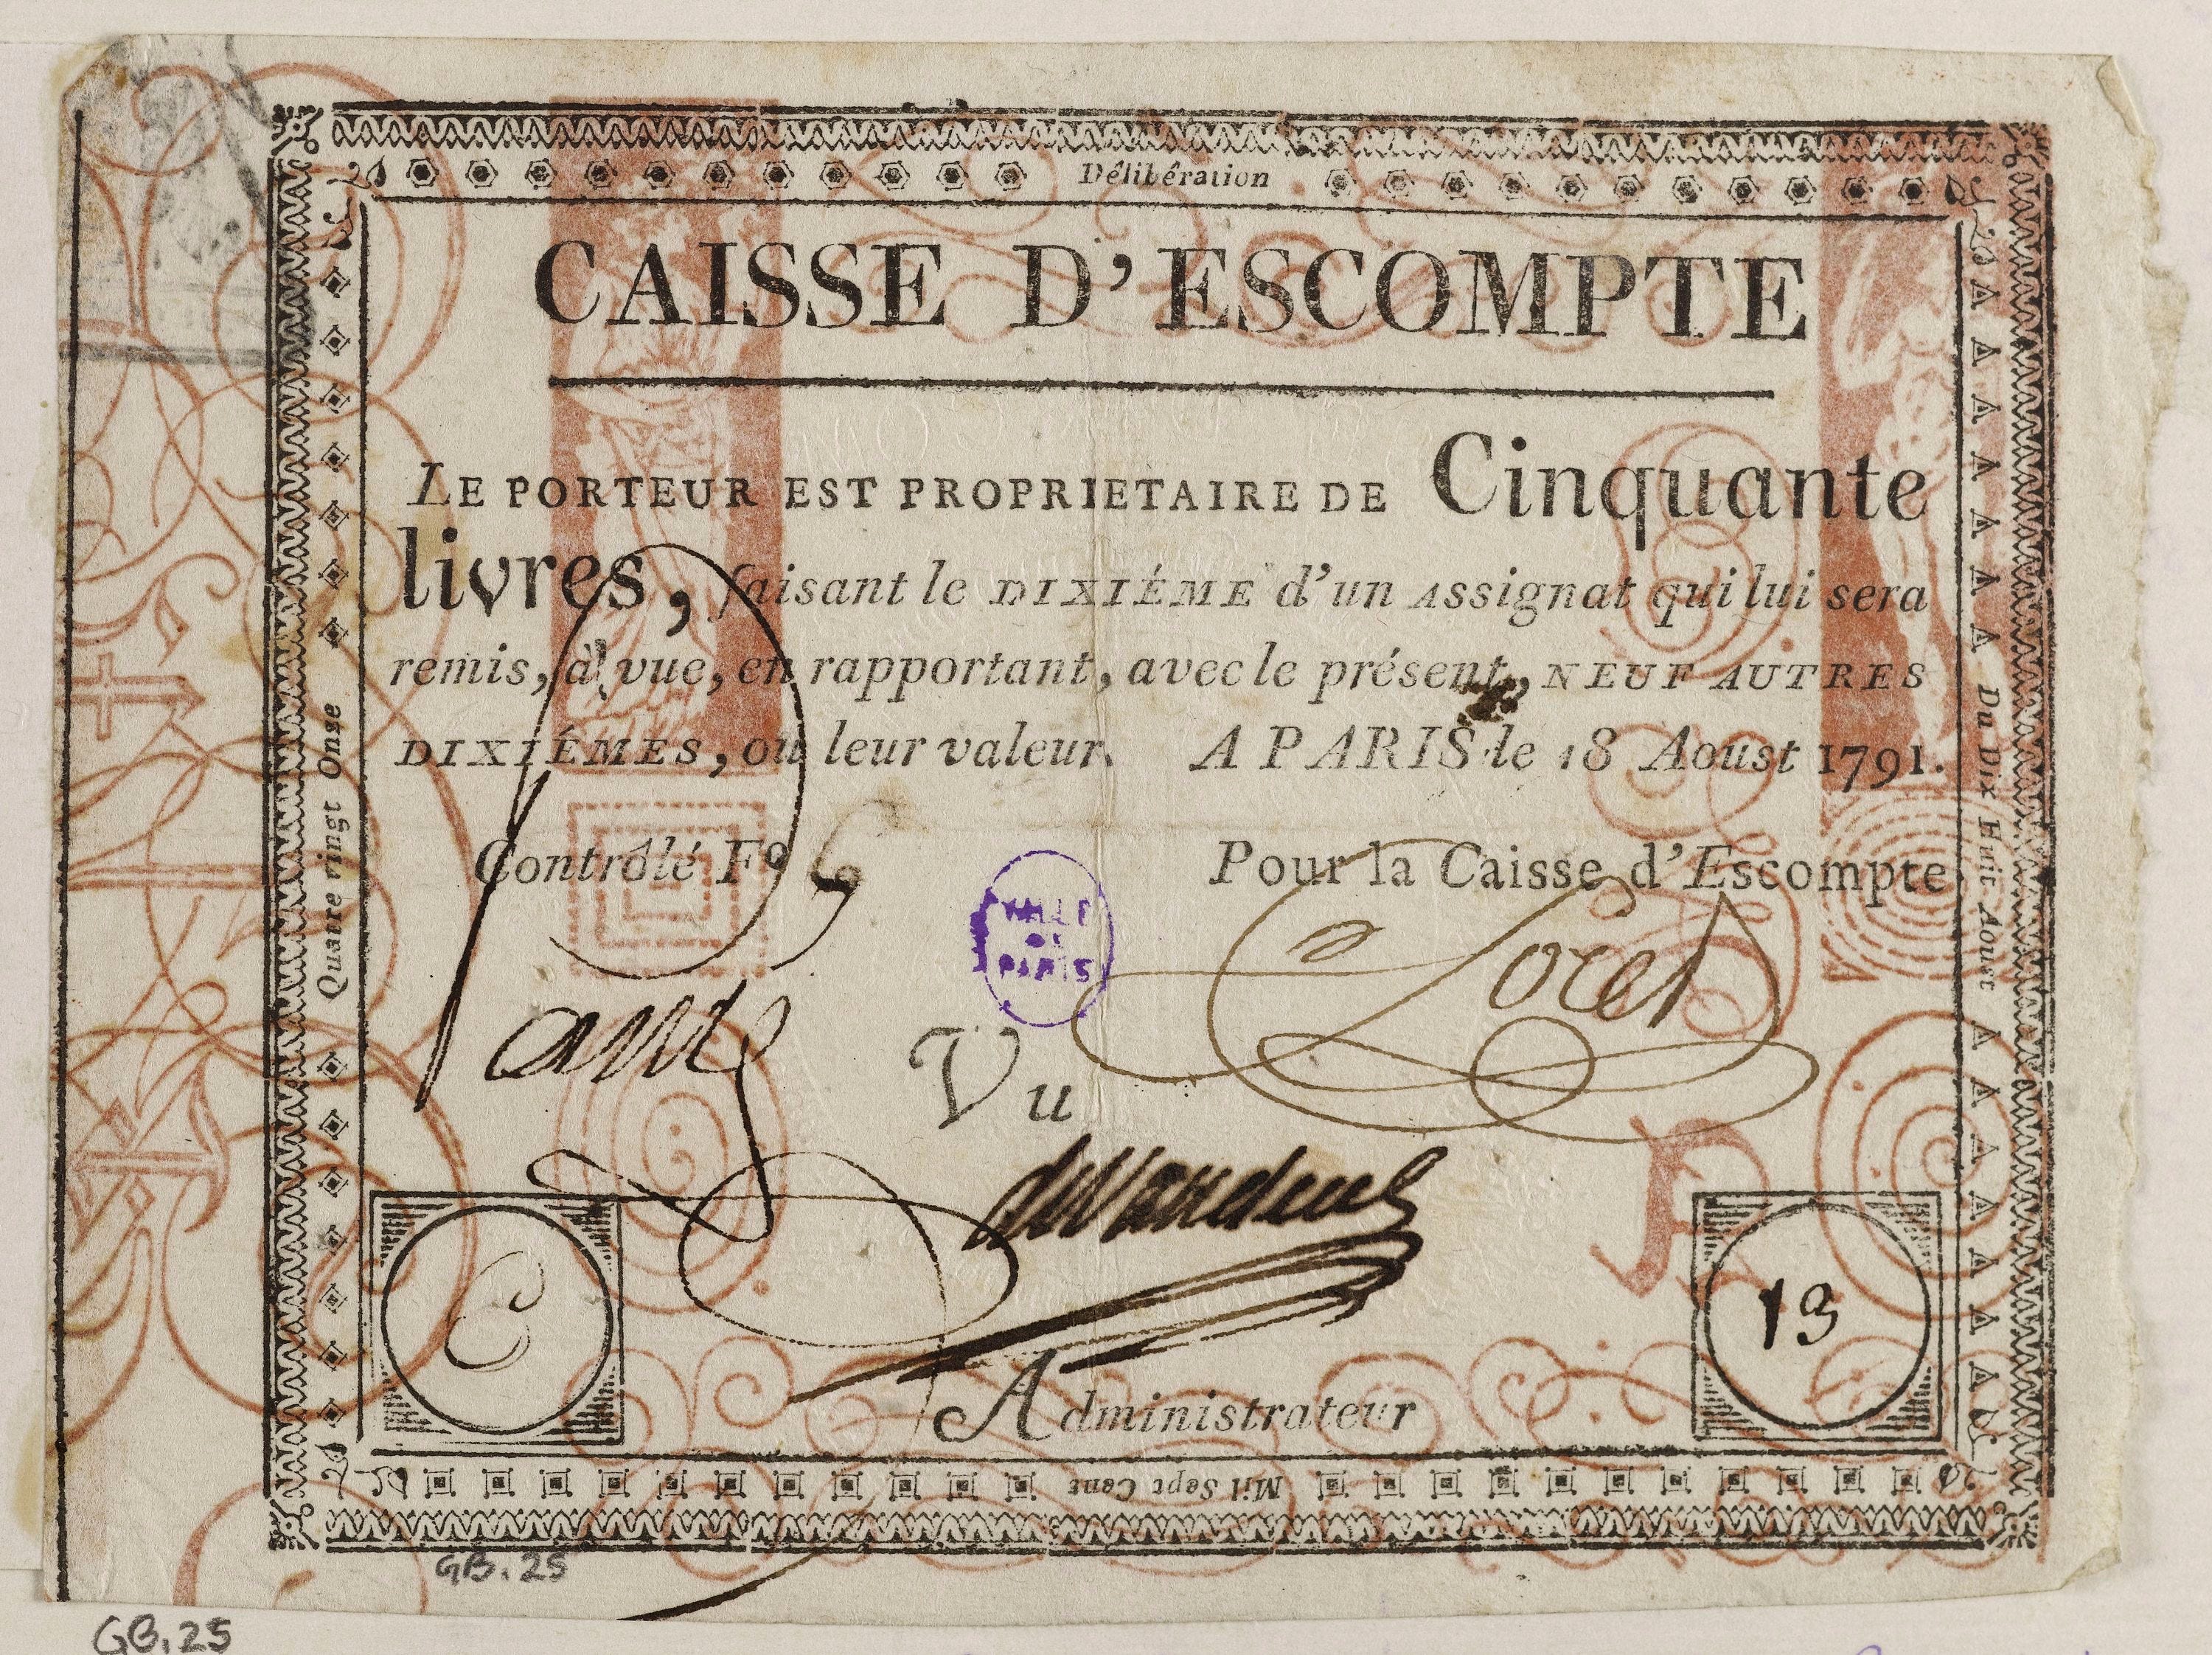 Délibération
CAISSE D'ESCOMPTE
LE PORTEUR EST PROPRIETAIRE DE Cinquante
livres, faisant le DIXIÉME d'un Assignat qui lui sera
remis, à vue, en rapportant, avec le présent, NEUF AUTRES
DIXIÉMES, ou leur valeur. A PARIS le 18 Aoust 1791.
Contrôlé Fo
Pour la Caisse d'Escompte
VILLE
DE
PARIS
Vu
13
Administrateur
Quatre vingt Onse
Du Dix Huit Aoust
Mil Sept Cent
GB.25
GB.25